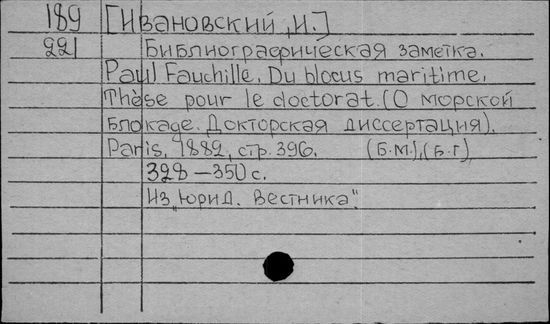 189 [Ивановский, И.]
221 Библиографическая заметка.
Paul Fauchille. Du blocus maritime.
Thèse pour le doctorat. (О морской
блокаде. Докторская диссертация).
Paris, 1882, стр. 396. (Б.м.), (Б.г)
328-350 с.
Из „Юрид. Вестника".